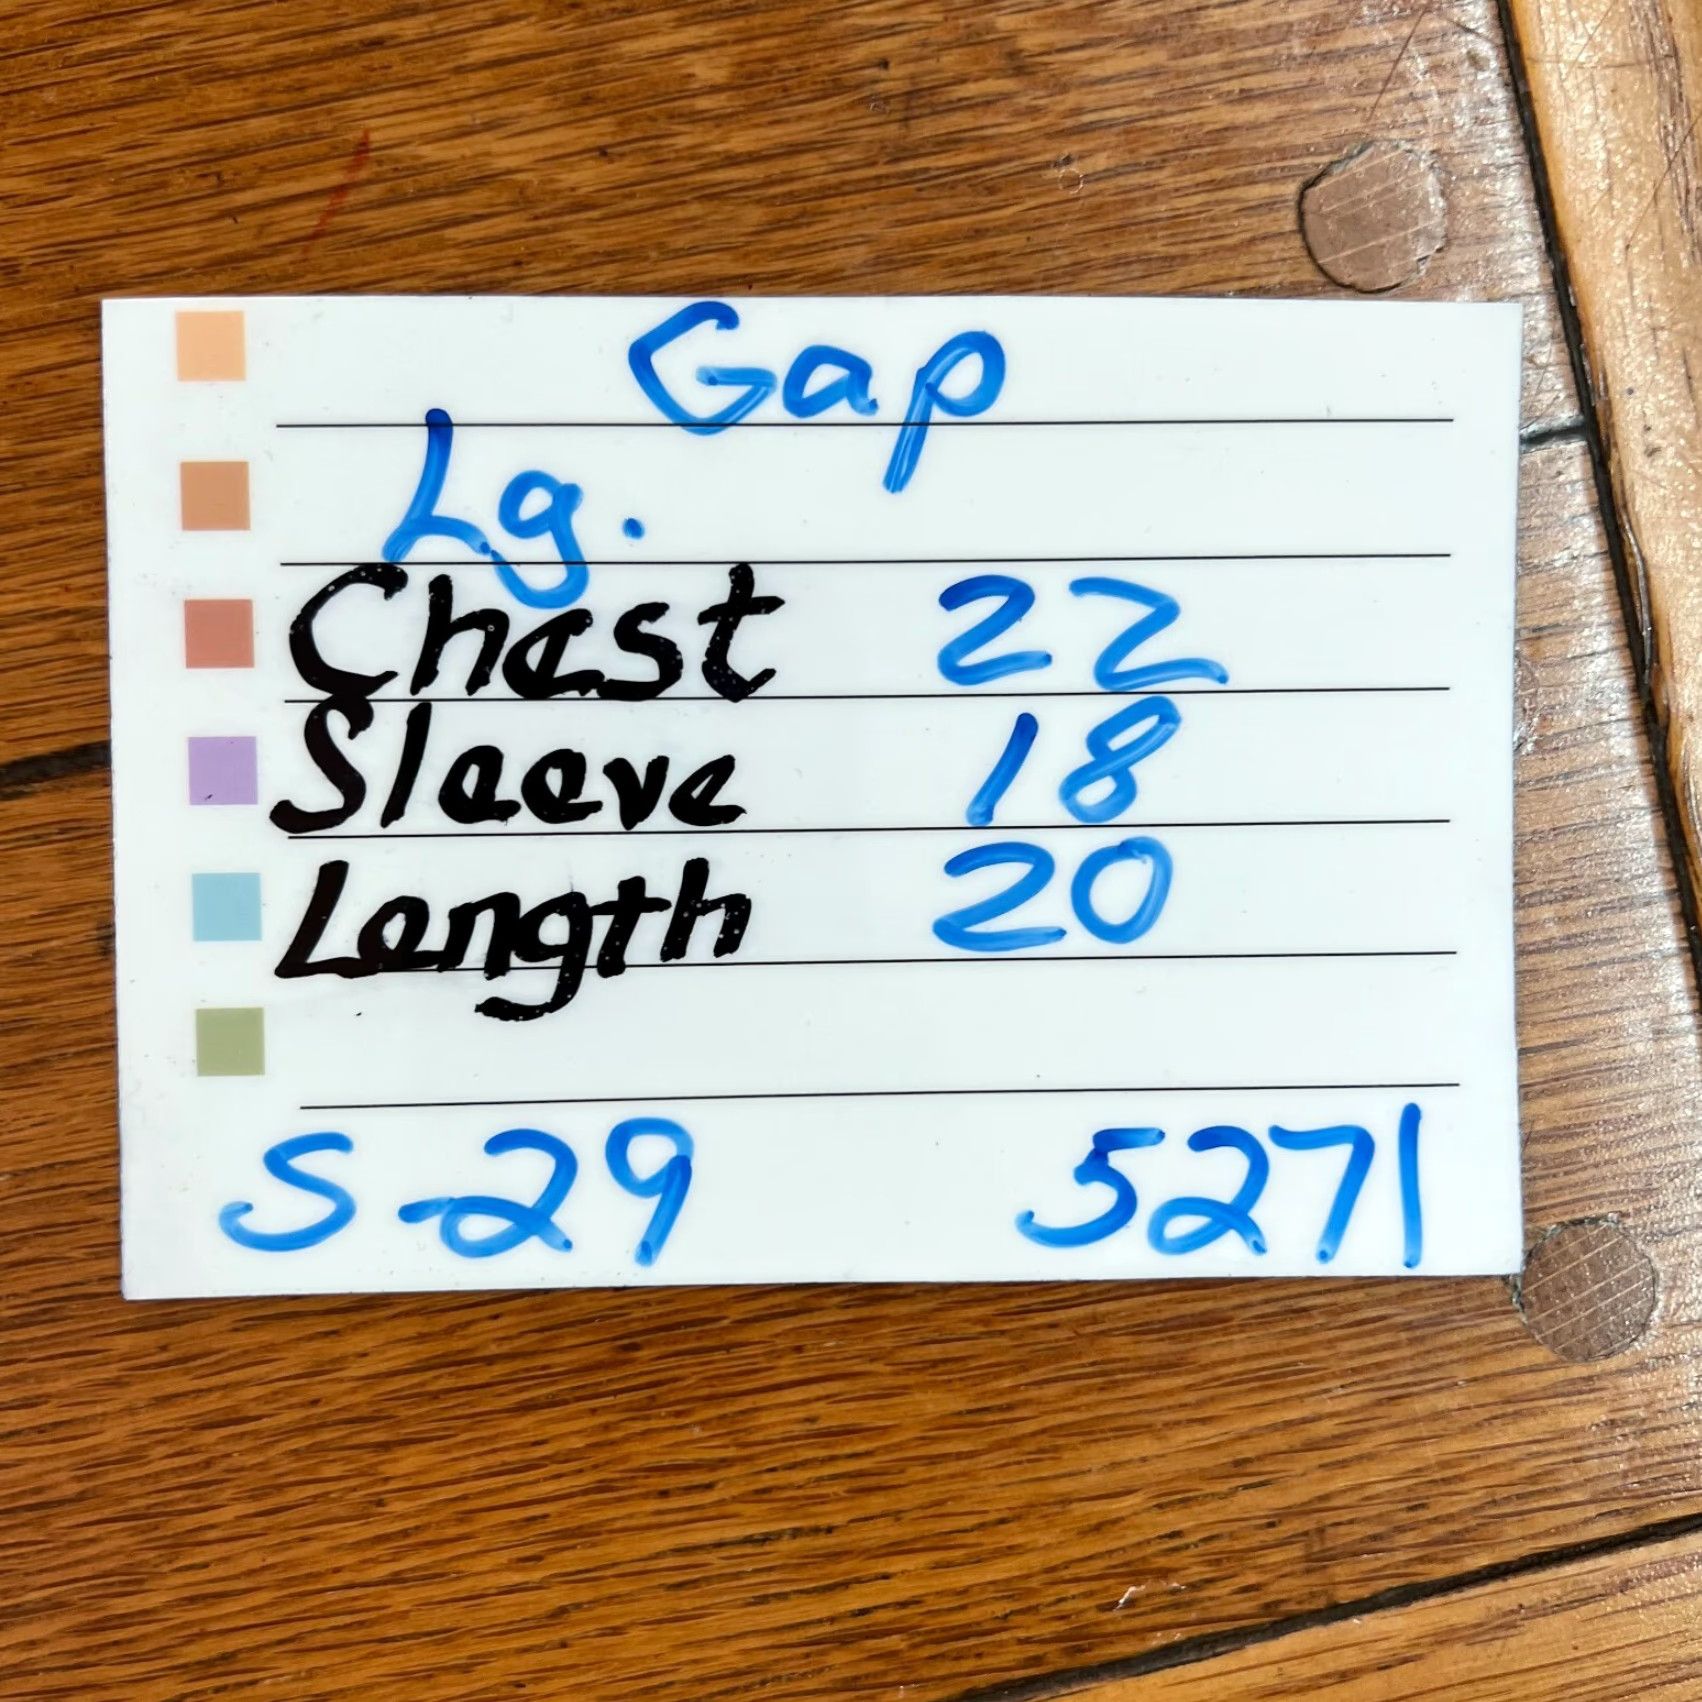 Gap
Lg.
Chest 22
Sleeve 18
Length 20
S-29 5271